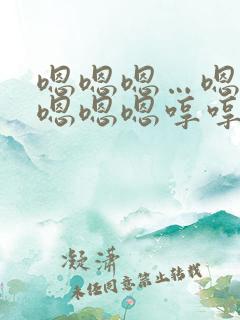 嗯嗯嗯…嗯
嗯嗯嗯哼哼
凝潇
未经同意禁止转载